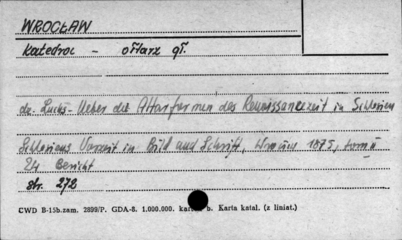 WROCŁAW
Katedra - ołtarz gł.
dr. Luchs - Ueber die Altarformen des Renaissancezeit in Schlesien
Schlesiens Vorzeit in Bild und Schrift, 1875,
24 Bericht
str. 272
CWD B-15b.zam. 2899/P. GDA-8. 1.000.000. b. Karta katal. (z liniat.)